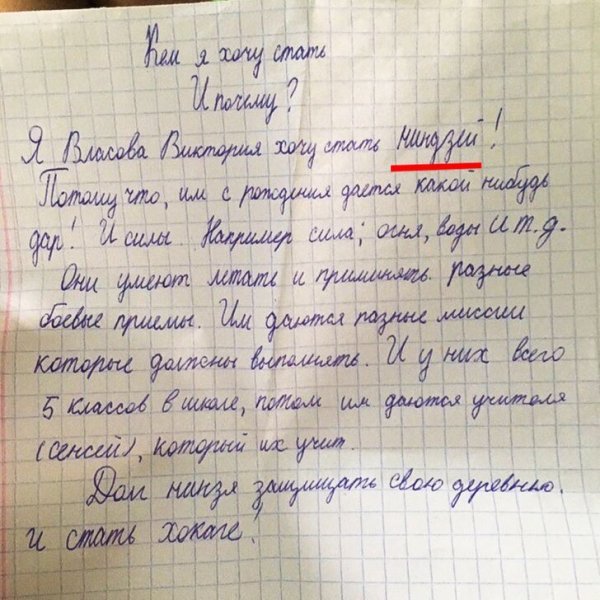 Кем я хочу стать
И почему?
Я Власова Виктория хочу стать ниндзей!
Потому что, им с рождения дается какой нибудь
дар! И силы. Например сила; огня, воды и т.д.
Они умеют летать и приминять разные
боевые приемы. Им даются разные миссии
которые должны выполнять. И у них всего
5 классов в школе, потом им даются учителя
(сенсей), который их учит.
Долг нинзя защищать свою деревнью.
и стать хокаге!